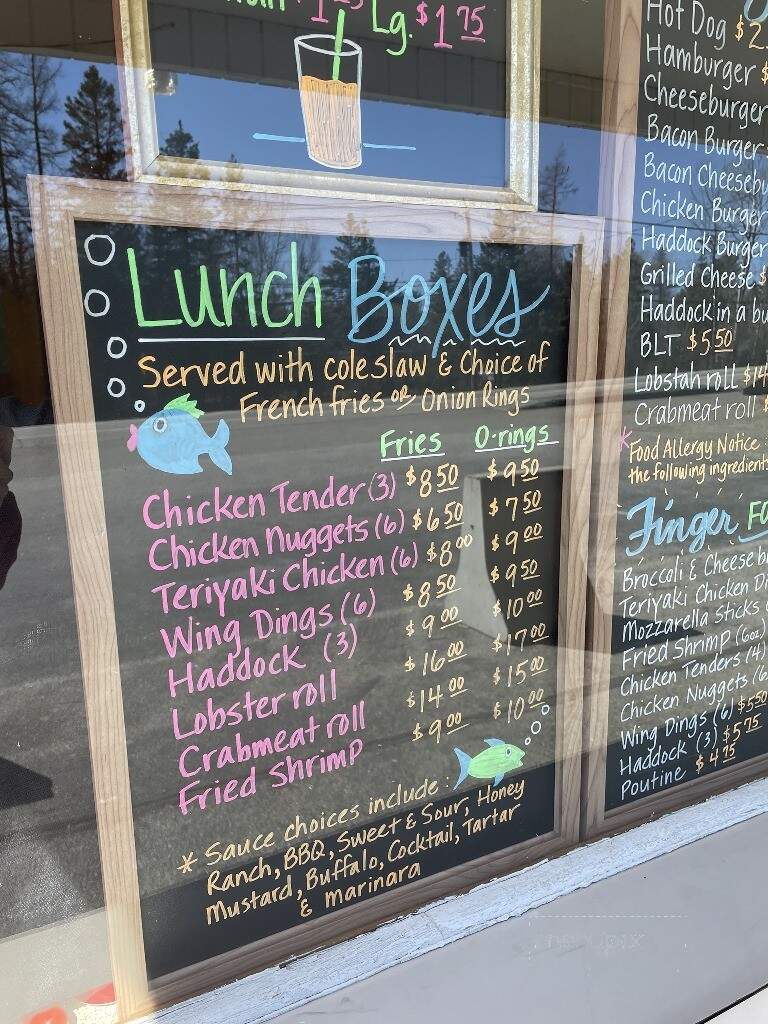 Lg. $1 75
Lunch Boxes
Served with coleslaw & Choice of
French fries or Onion Rings
Fries O-rings
Chicken Tender (3) $8 50 $9 50
Chicken Nuggets (6) $6 50 $7 50
Teriyaki Chicken (6) $8 00 $9 00
Wing Dings (6) $8 50 $9 50
Haddock (3) $9 00 $10 00
Lobster roll $16 00 $17 00
Crabmeat roll $14 00 $15 00
Fried Shrimp $9 00 $10 00
* Sauce choices include:
Ranch, BBQ, Sweet & Sour, Honey
Mustard, Buffalo, Cocktail, Tartar
& marinara
Hot Dog $2
Hamburger $
Cheeseburger
Bacon Burger
Bacon
Chicken Burger
Haddock Burger
Grilled Cheese $
Haddock in a
BLT $5 50
Lobstah roll $14
Crabmeat roll $
* Food Allergy Notice:
the following ingredients
Finger
Broccoli & Cheese
Teriyaki Chicken
Mozzarella Sticks
Fried Shrimp (6oz)
Chicken Tenders (4)
Chicken Nuggets (6
Wing Dings (6) $5 50
Haddock (3) $5 75
Poutine $4 75